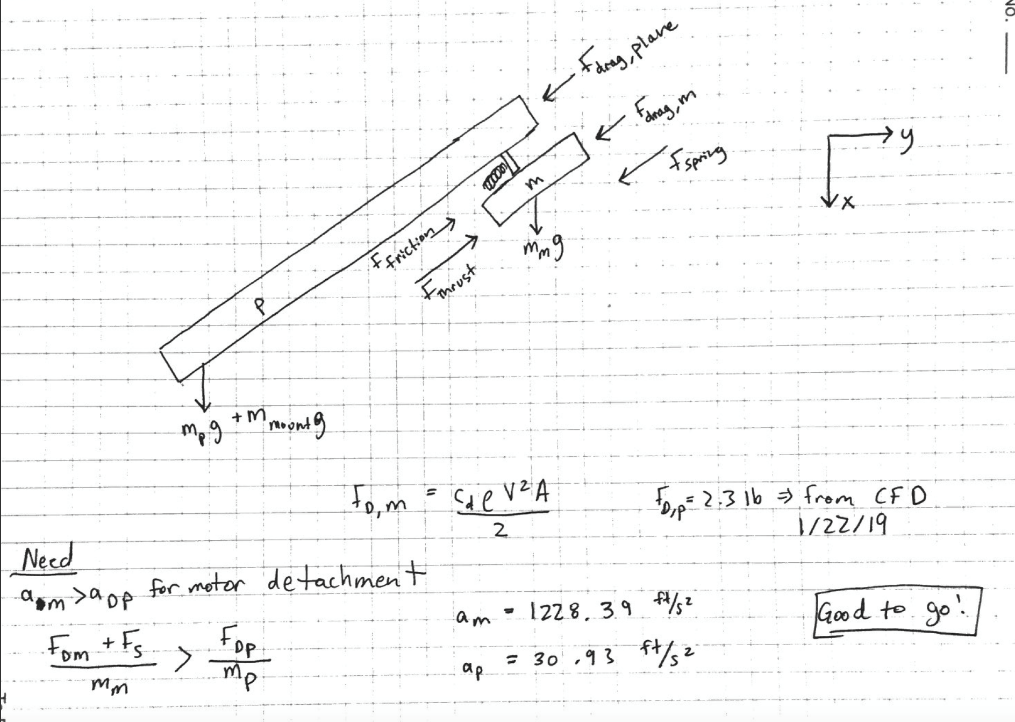 NO.
F drag, plane
F drag, m
F spring
y
x
m
m_m g
F friction
F Thrust
P
m_p g + m_mount g
F_D,m = C_d ρ V² A / 2
F_D,p = 2.3 lb ⇒ from CFD
1/22/19
Need
a_Dm > a_DP for motor detachment
F_Dm + F_s / m_m > F_DP / m_p
a_m = 1228.39 ft/s²
a_p = 30.93 ft/s²
Good to go!